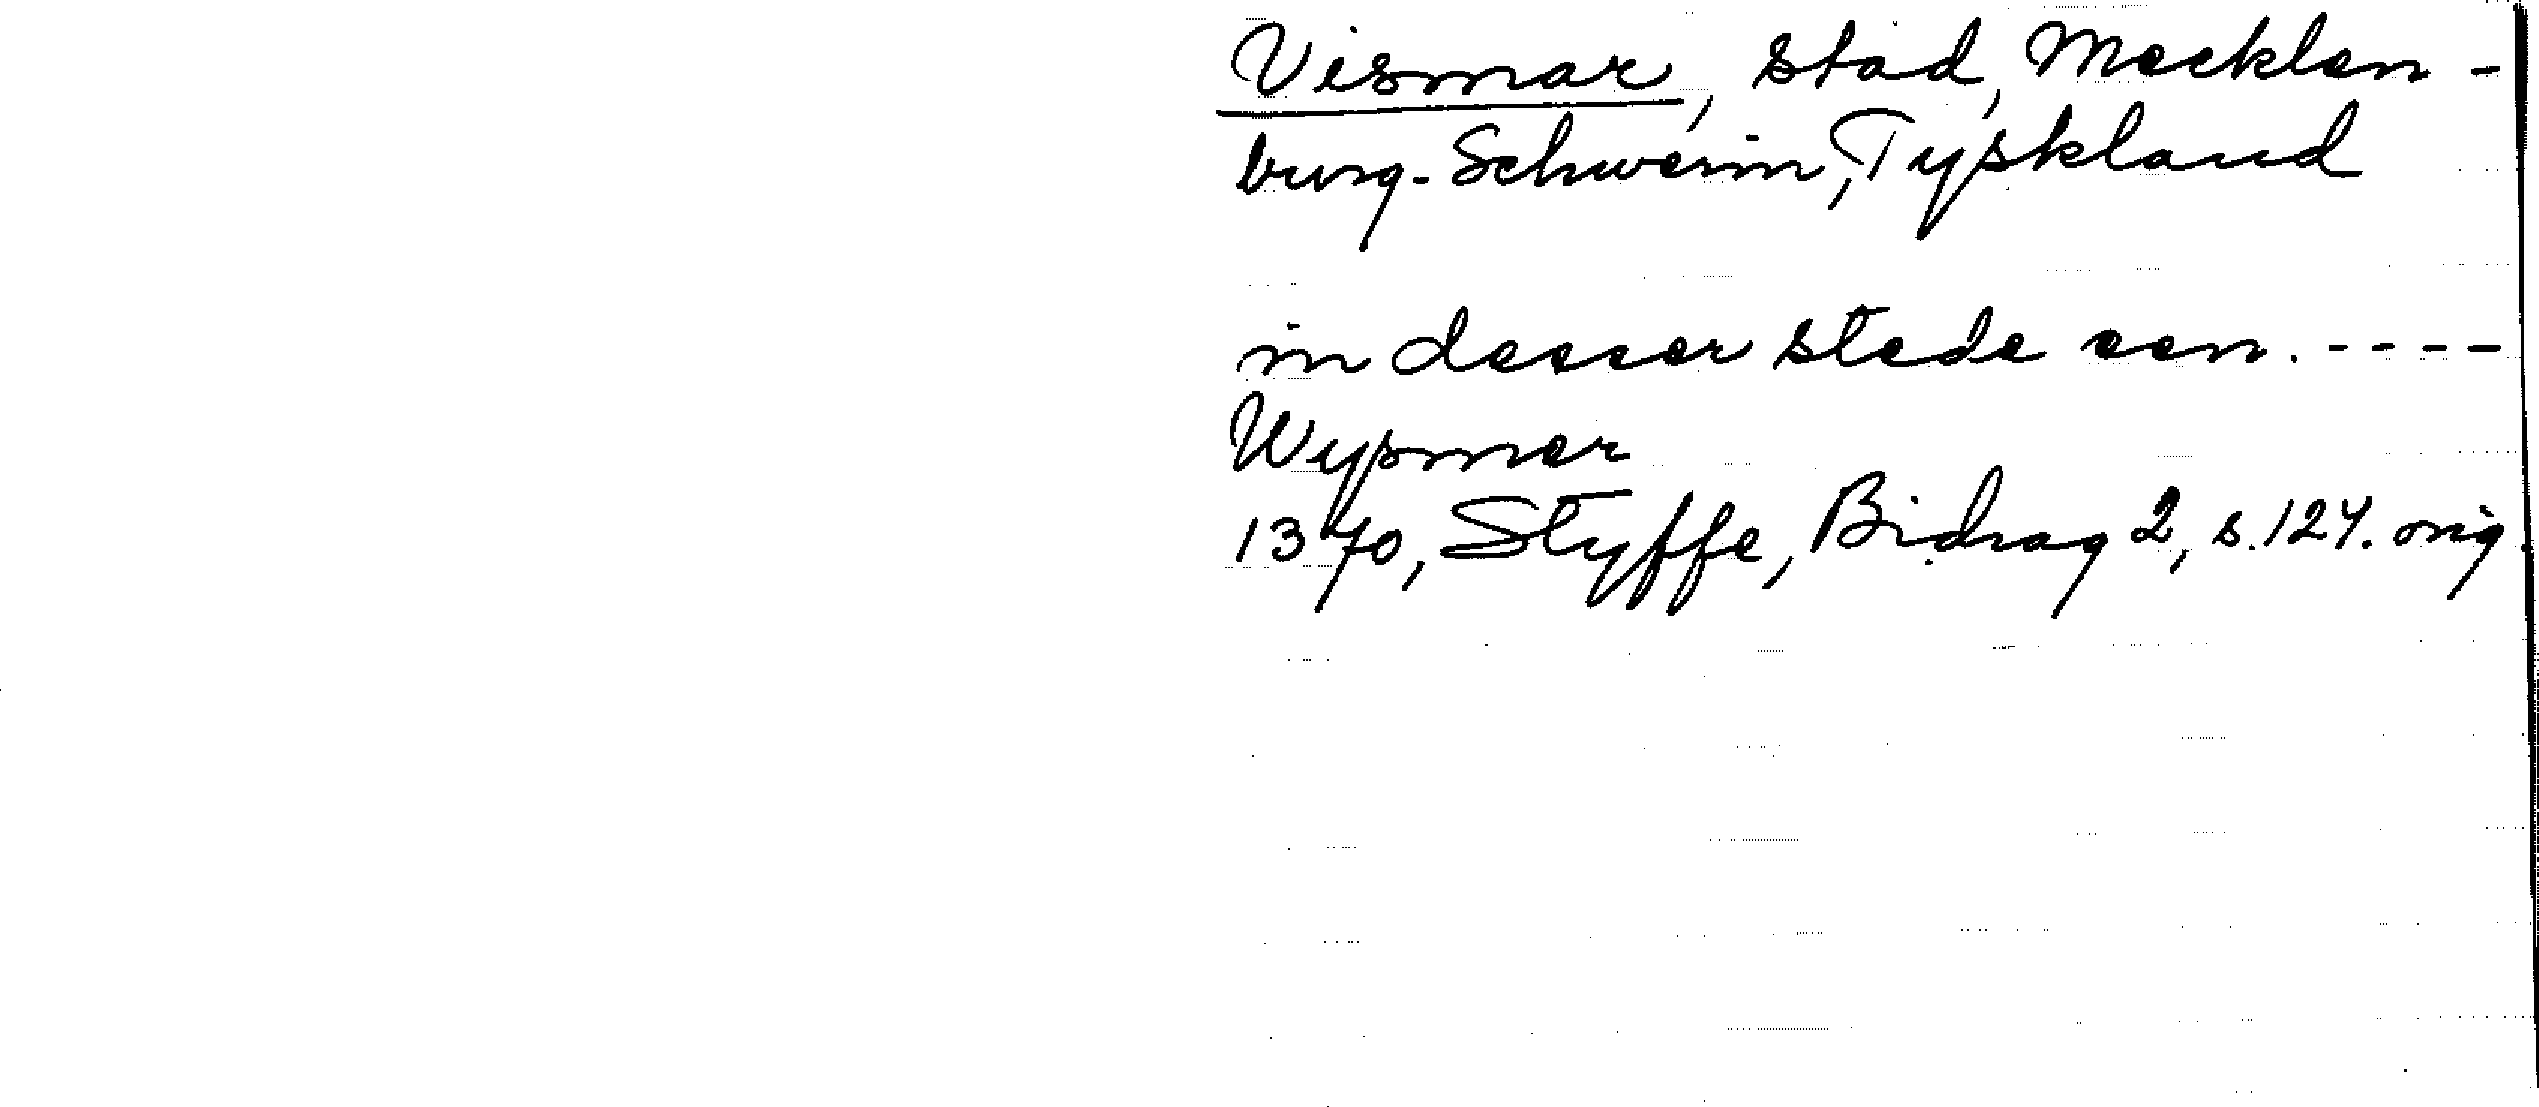 Vismar, stad, Mecklen-
burg-Schwerin, Tyskland
in desser stede een. ----
Wysmer
1370, Styffe, Bidrag 2, s. 127. orig.